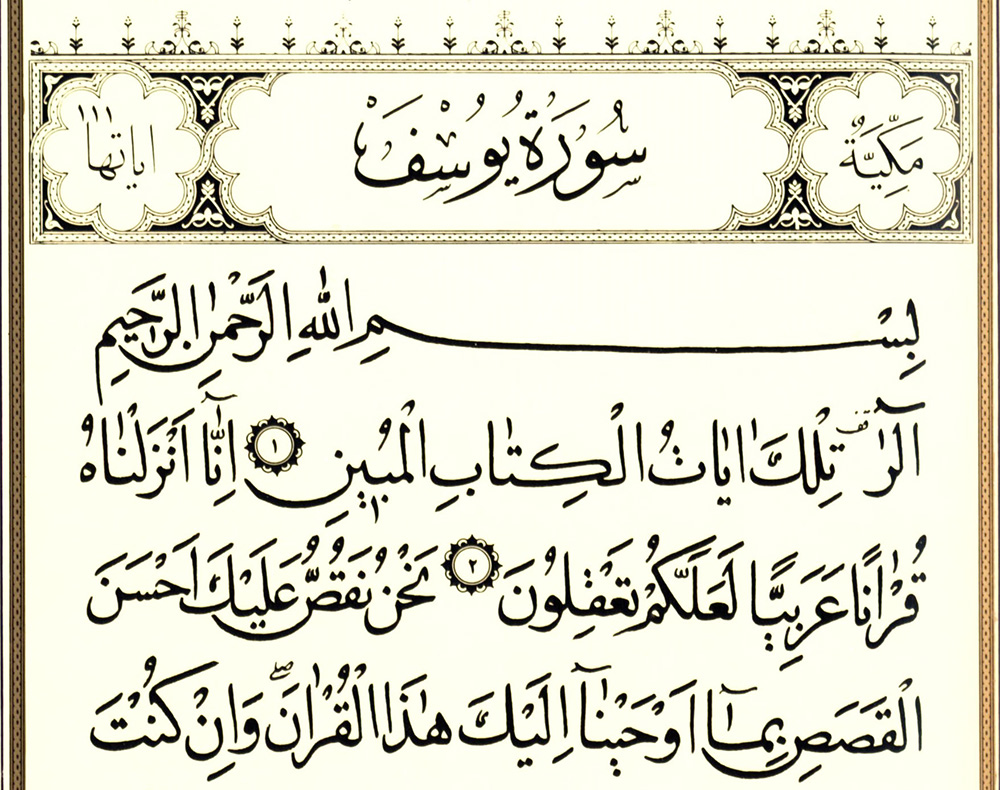 مَكِّيَّةٌ
سُورَةُ يُوسُفَ
اٰيَاتُهَا ١١١
بِسْمِ اللّٰهِ الرَّحْمٰنِ الرَّحٖيمِ
الٓرٰ تِلْكَ اٰيَاتُ الْكِتَابِ الْمُبٖينِ ١ اِنَّٓا اَنْزَلْنَاهُ
قُرْاٰنًا عَرَبِيًّا لَعَلَّكُمْ تَعْقِلُونَ ٢ نَحْنُ نَقُصُّ عَلَيْكَ اَحْسَنَ
الْقَصَصِ بِمَٓا اَوْحَيْنَٓا اِلَيْكَ هٰذَا الْقُرْاٰنَ وَاِنْ كُنْتَ